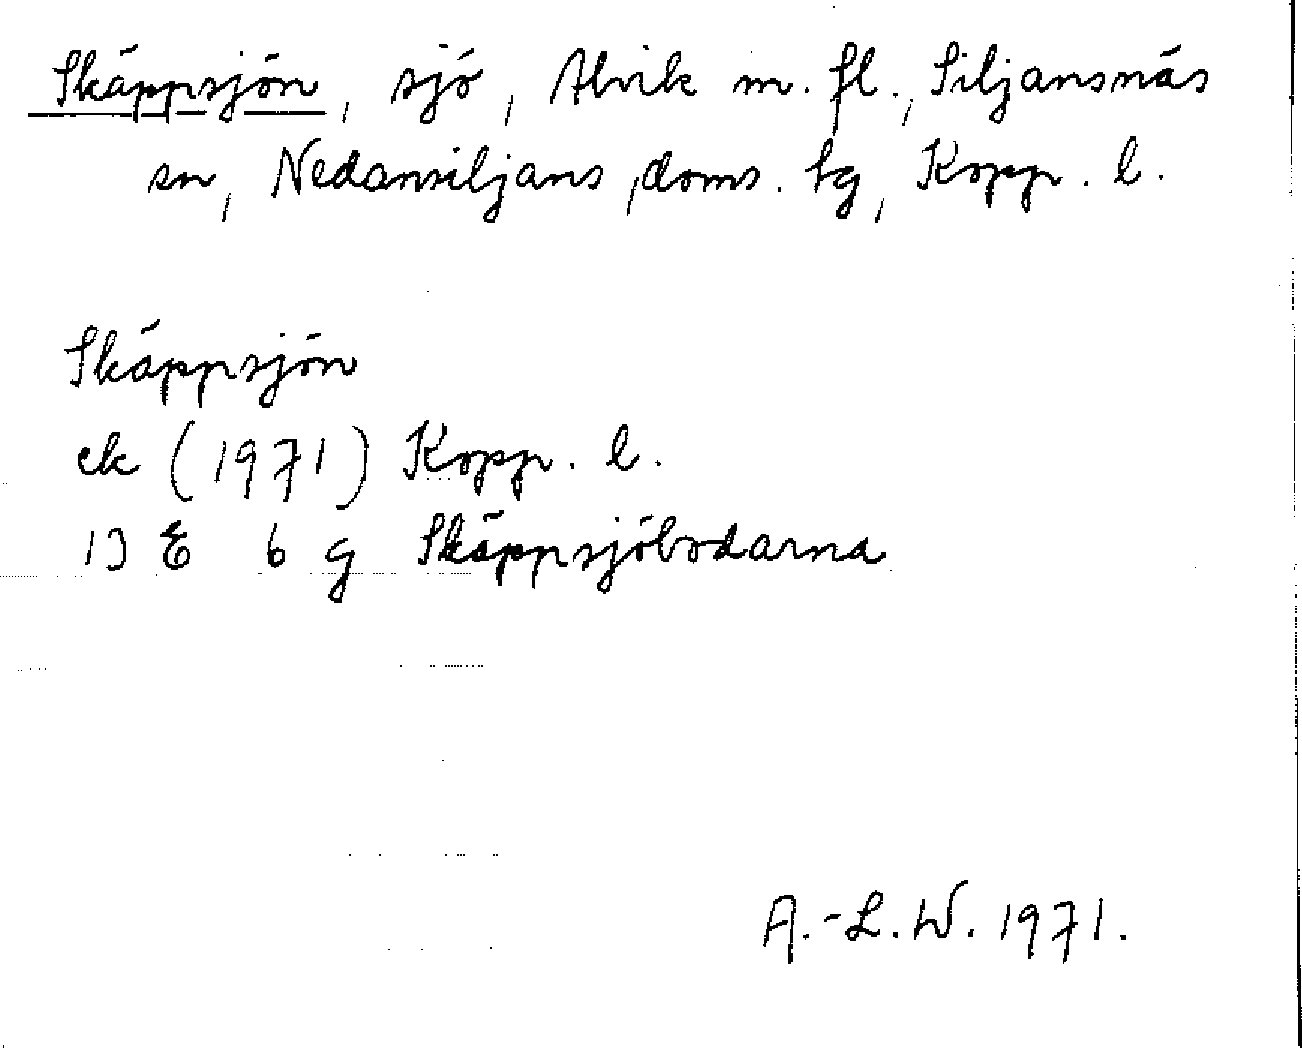 Skäppsjön, sjö, Alvik m. fl., Siljansnäs
sn, Nedansiljans doms. tg, Kopp. l.
Skäppsjön
ek (1971) Kopp. l.
13 E 6 g Skäppsjöbodarna
A.-L. W. 1971.